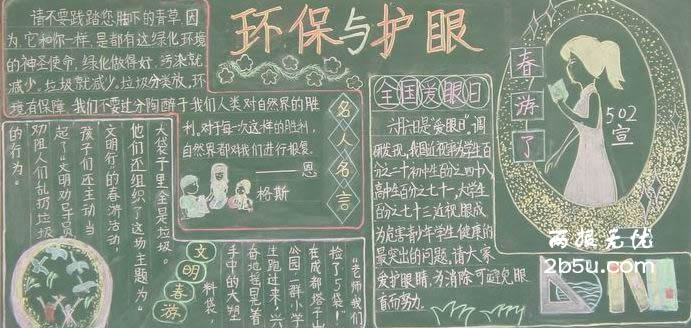 环保与护眼
请不要践踏您脚下的青草,因
为,它和你一样,是都有这绿化环境
的神圣使命,绿化做得好,污染就
减少,垃圾就减少,垃圾分类放,环
境有保障,我们不要过分陶醉于我们人类对自然界的胜
利,对于每一次这样的胜利,
自然界都对我们进行报复。
——恩
格斯
名人名言
全国爱眼日
六月六日是“爱眼日”,调
研发现,我国近视率为小学生百
分之二十,初中生百分之四十,
高中生百分之七十,大学生
百分之七十三,近视眼成
为危害青少年学生健康的
最突出的问题,请大家
爱护眼睛,为消除可避免眼
盲而努力。
春游了
502
宣
文明春游
“老师我们
捡了5袋!”
在成都塔子山
公园,一群小学
生跑过来,兴
奋地摇晃着
手中的大塑
料袋,
大袋子里全是垃圾。
他们还组织了这场主题为“
文明行”的春游活动,
孩子们还主动当
起了“文明劝导员”,
劝阻人们乱扔垃圾
的行为。
两报无忧
2b5u.com